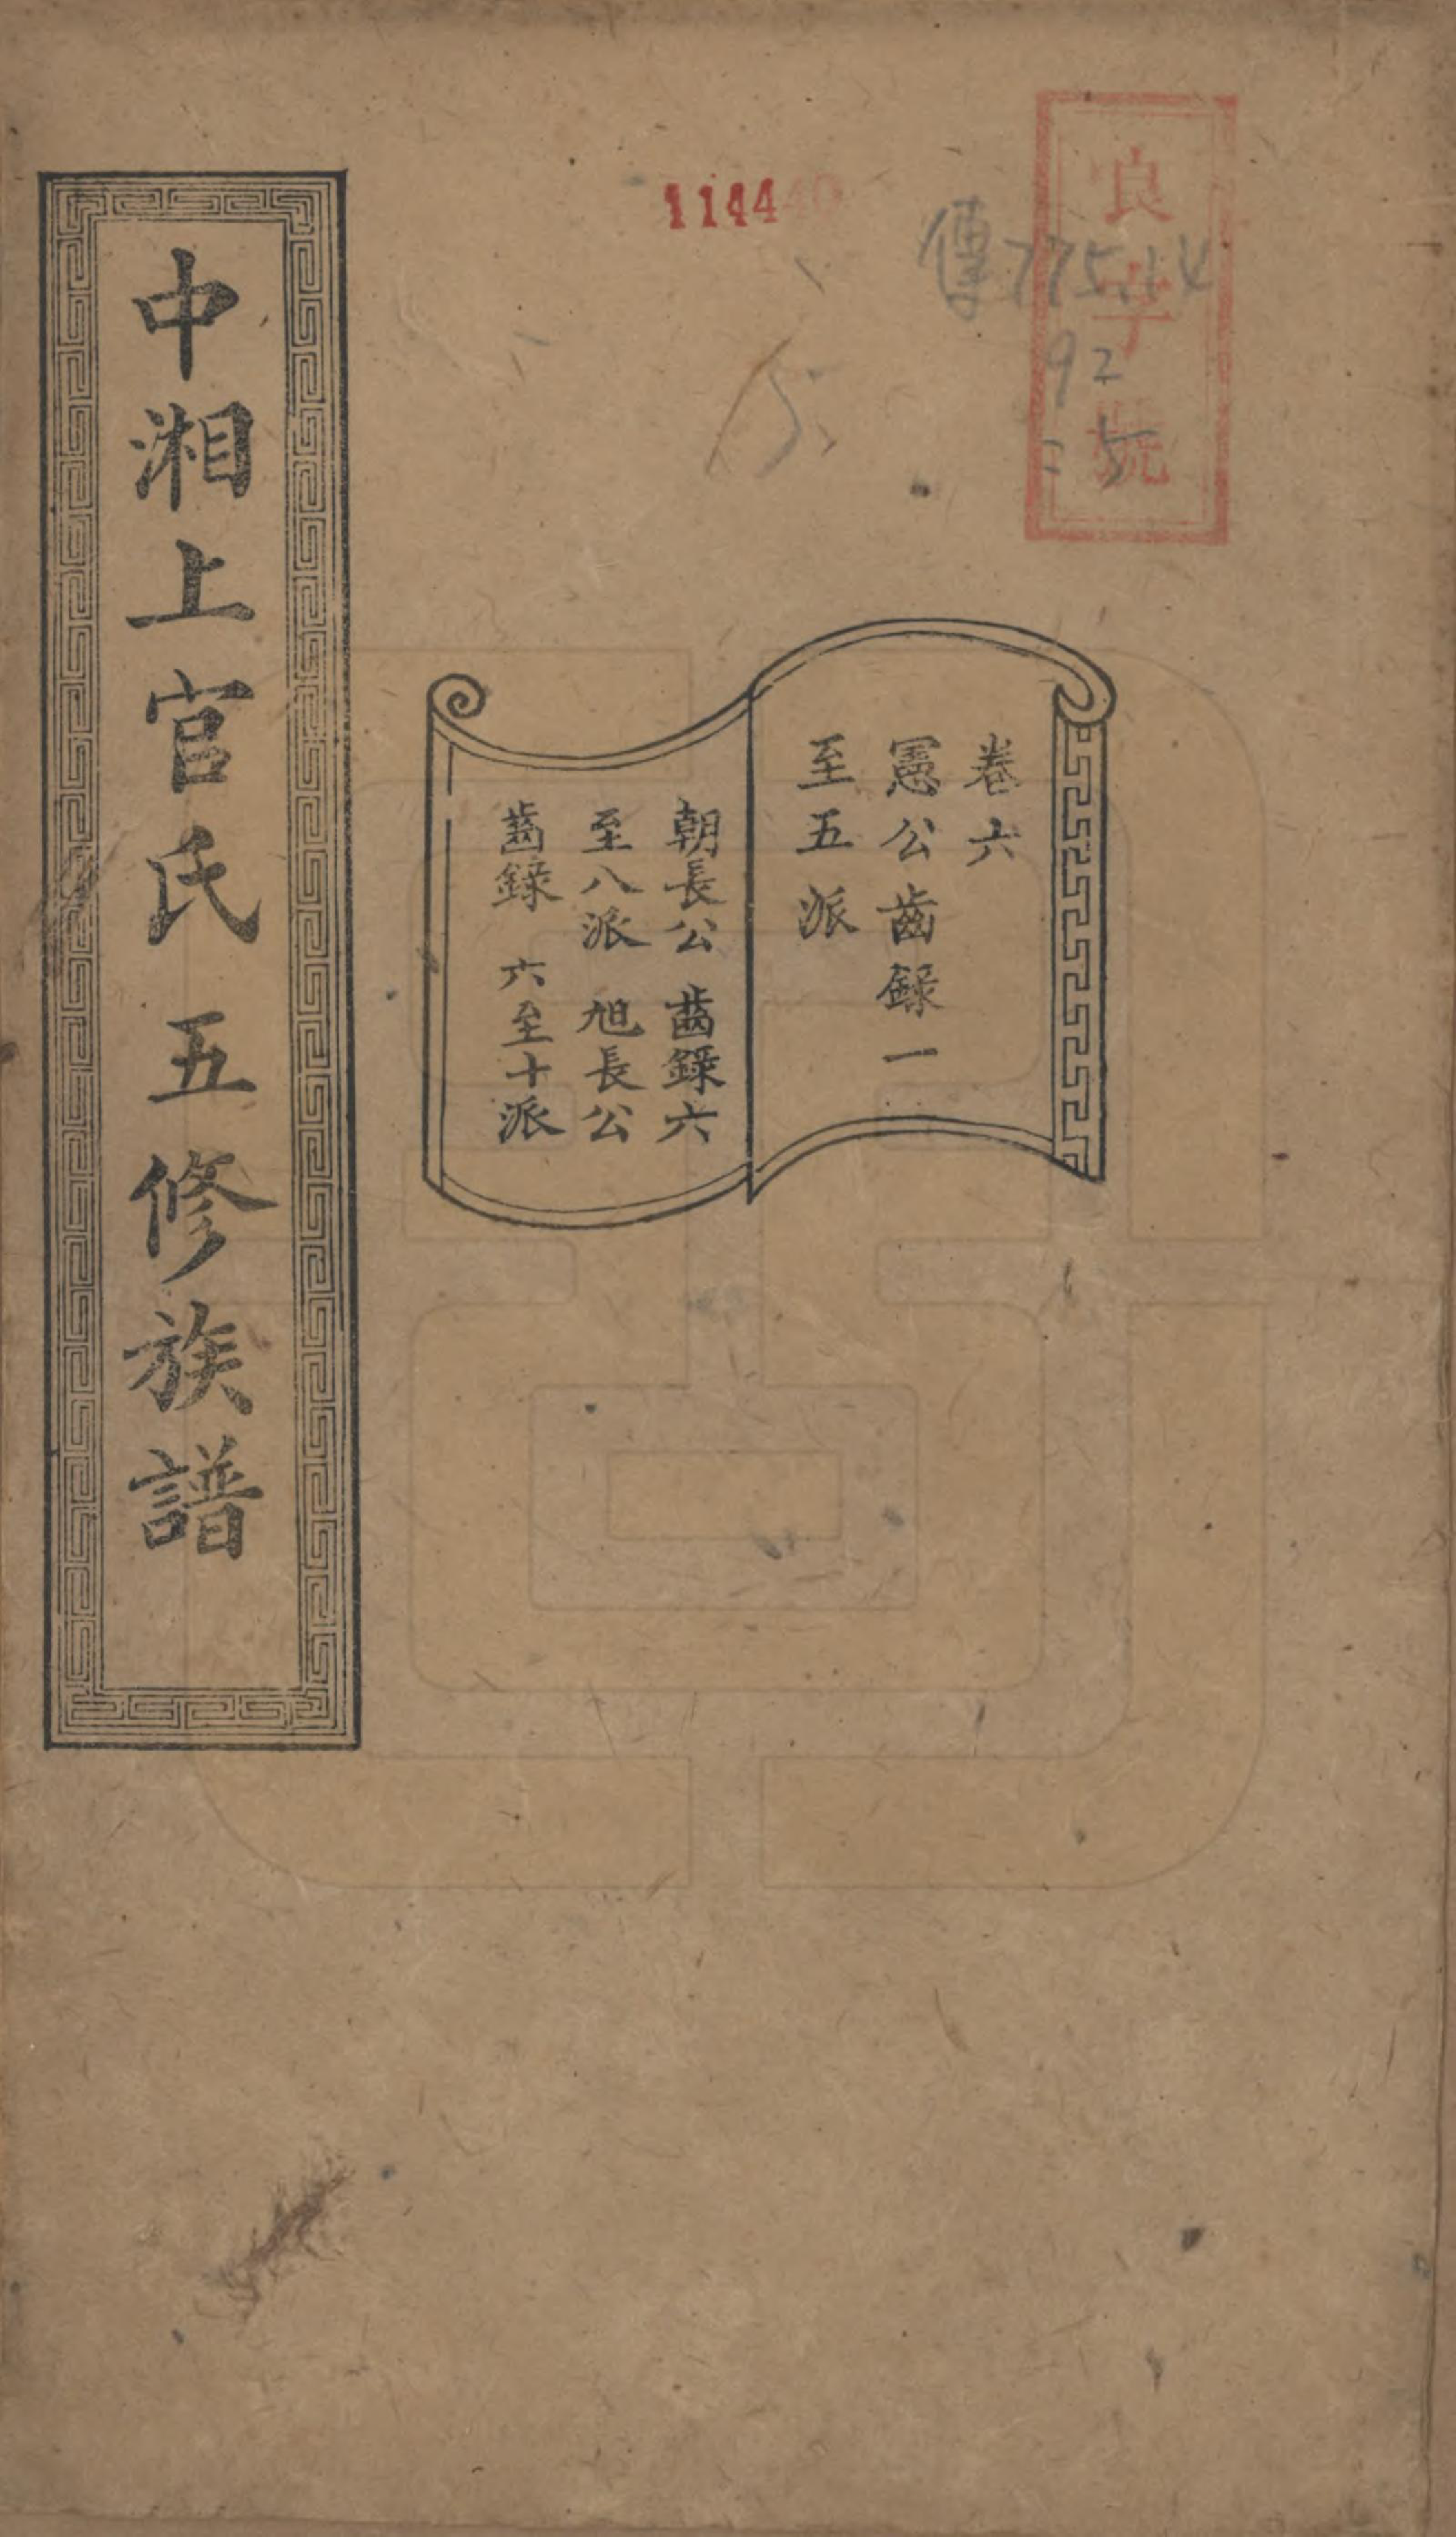 良字號
114440
傳775.14
92
=5
卷六
憲公齒錄一
至五派
朝長公 齒錄六
至八派 旭長公
齒錄 六至十派
中湘上官氏五修族譜